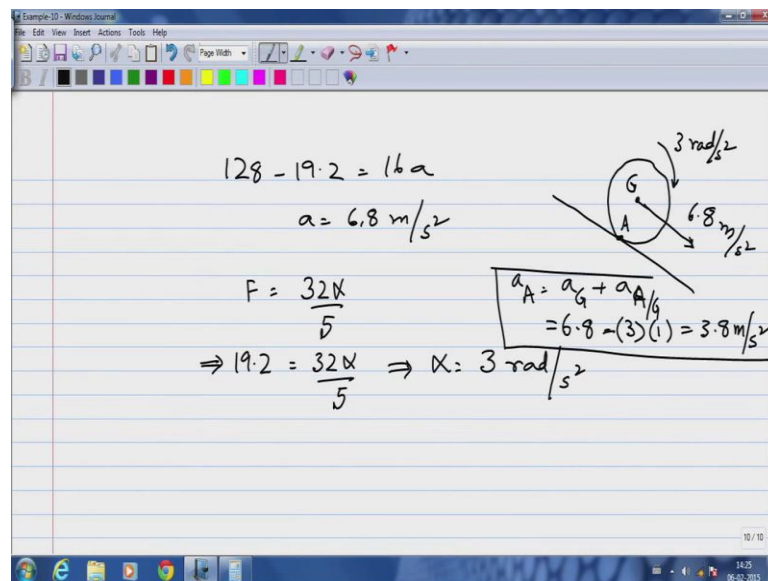 Example-10 - Windows Journal
File Edit View Insert Actions Tools Help
Page Width
B I
128 - 19.2 = 16a
a = 6.8 m/s²
F = 32α/5
⇒ 19.2 = 32α/5 ⇒ α = 3 rad/s²
3 rad/s²
G
A
6.8 m/s²
a_A = a_G + a_A/G
= 6.8 - (3)(1) = 3.8 m/s²
10 / 10
14:25
06-02-2015